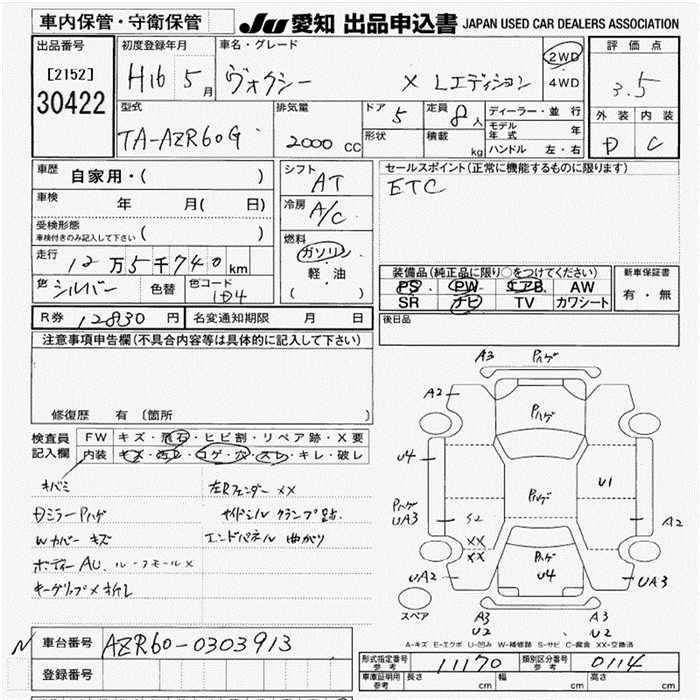 車内保管・守衛保管
JU 愛知 出品申込書 JAPAN USED CAR DEALERS ASSOCIATION
出品番号
[2152]
30422
初度登録年月
H16 5月
車名・グレード
ヴォクシー X Lエディション
2WD
4WD
評価点
3.5
外装 内装
D C
型式
TA-AZR60G
排気量
2000 CC
ドア 5
形状
定員 8人
積載 kg
ディーラー・並行
モデル年式 年
ハンドル 左・右
車歴
自家用・( )
車検
年 月( 日)
受検形態
車検付きのみ記入して下さい ( )
走行
12万5千740km
色 シルバー 色替 色コード 1D4
シフト
AT
冷房
A/C
燃料
ガソリン
軽・油
( )
セールスポイント(正常に機能するものに限ります)
ETC
装備品(純正品に限り○をつけてください)
PS PW エアB AW
SR ナビ TV カワシート
新車保証書
有・無
R券 12830円 名変通知期限 月 日
後日品
注意事項申告欄(不具合内容等は具体的に記入して下さい)
修復歴 有 〔箇所 〕
検査員
記入欄
FW キズ・飛石・ヒビ割・リペア跡・X要
内装 キズ・汚レ・コゲ・穴・スレ・キレ・破レ
キバミ
Dミラー Pハゲ
Wカバー キズ
ボディー AU. ルーフモール X
キーグリップ X 折レ
左Rフェンダー XX
サイドシル クランプ跡.
エンドパネル 曲がり
A3 Pハゲ
A2 Pハゲ
U4 U1
Pハゲ Pハゲ
UA3 S2 A2
XX
XX Pハゲ
UA2 U4 UA3
スペア
A3 A3
U2 U2
A-キズ E-エクボ U-凹み W-補修跡 S-サビ C-腐食 XX-交換済
N 車台番号 AZR60-0303913
登録番号
形式指定番号 参考 11170 類別区分番号 参考 0114
車庫証明用 参考 長さ cm 幅 cm 高さ cm